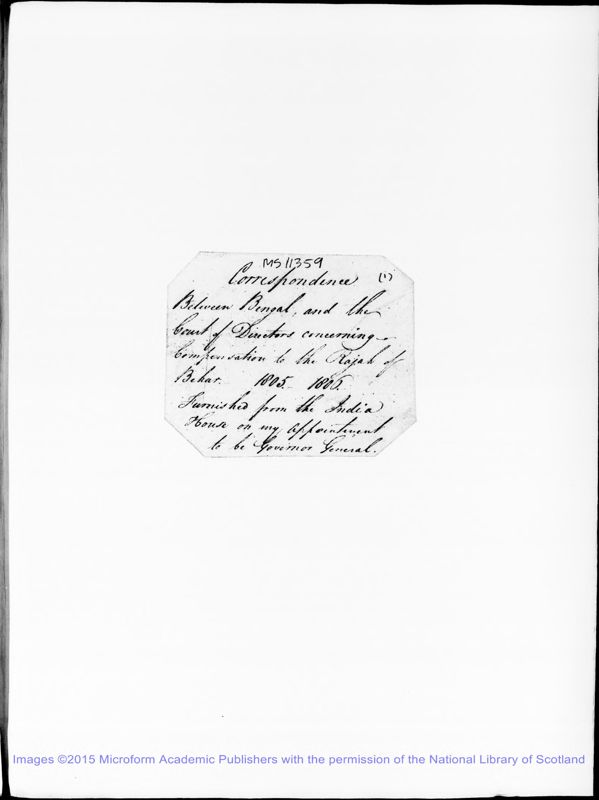 MS 11359
Correspondence (1)
Between Bengal, and the
Court of Directors concerning
Compensation to the Rajah of
Behar. 1805 - 1806.
Furnished from the India
House on my Appointment
to be Governor General.
Images ©2015 Microform Academic Publishers with the permission of the National Library of Scotland